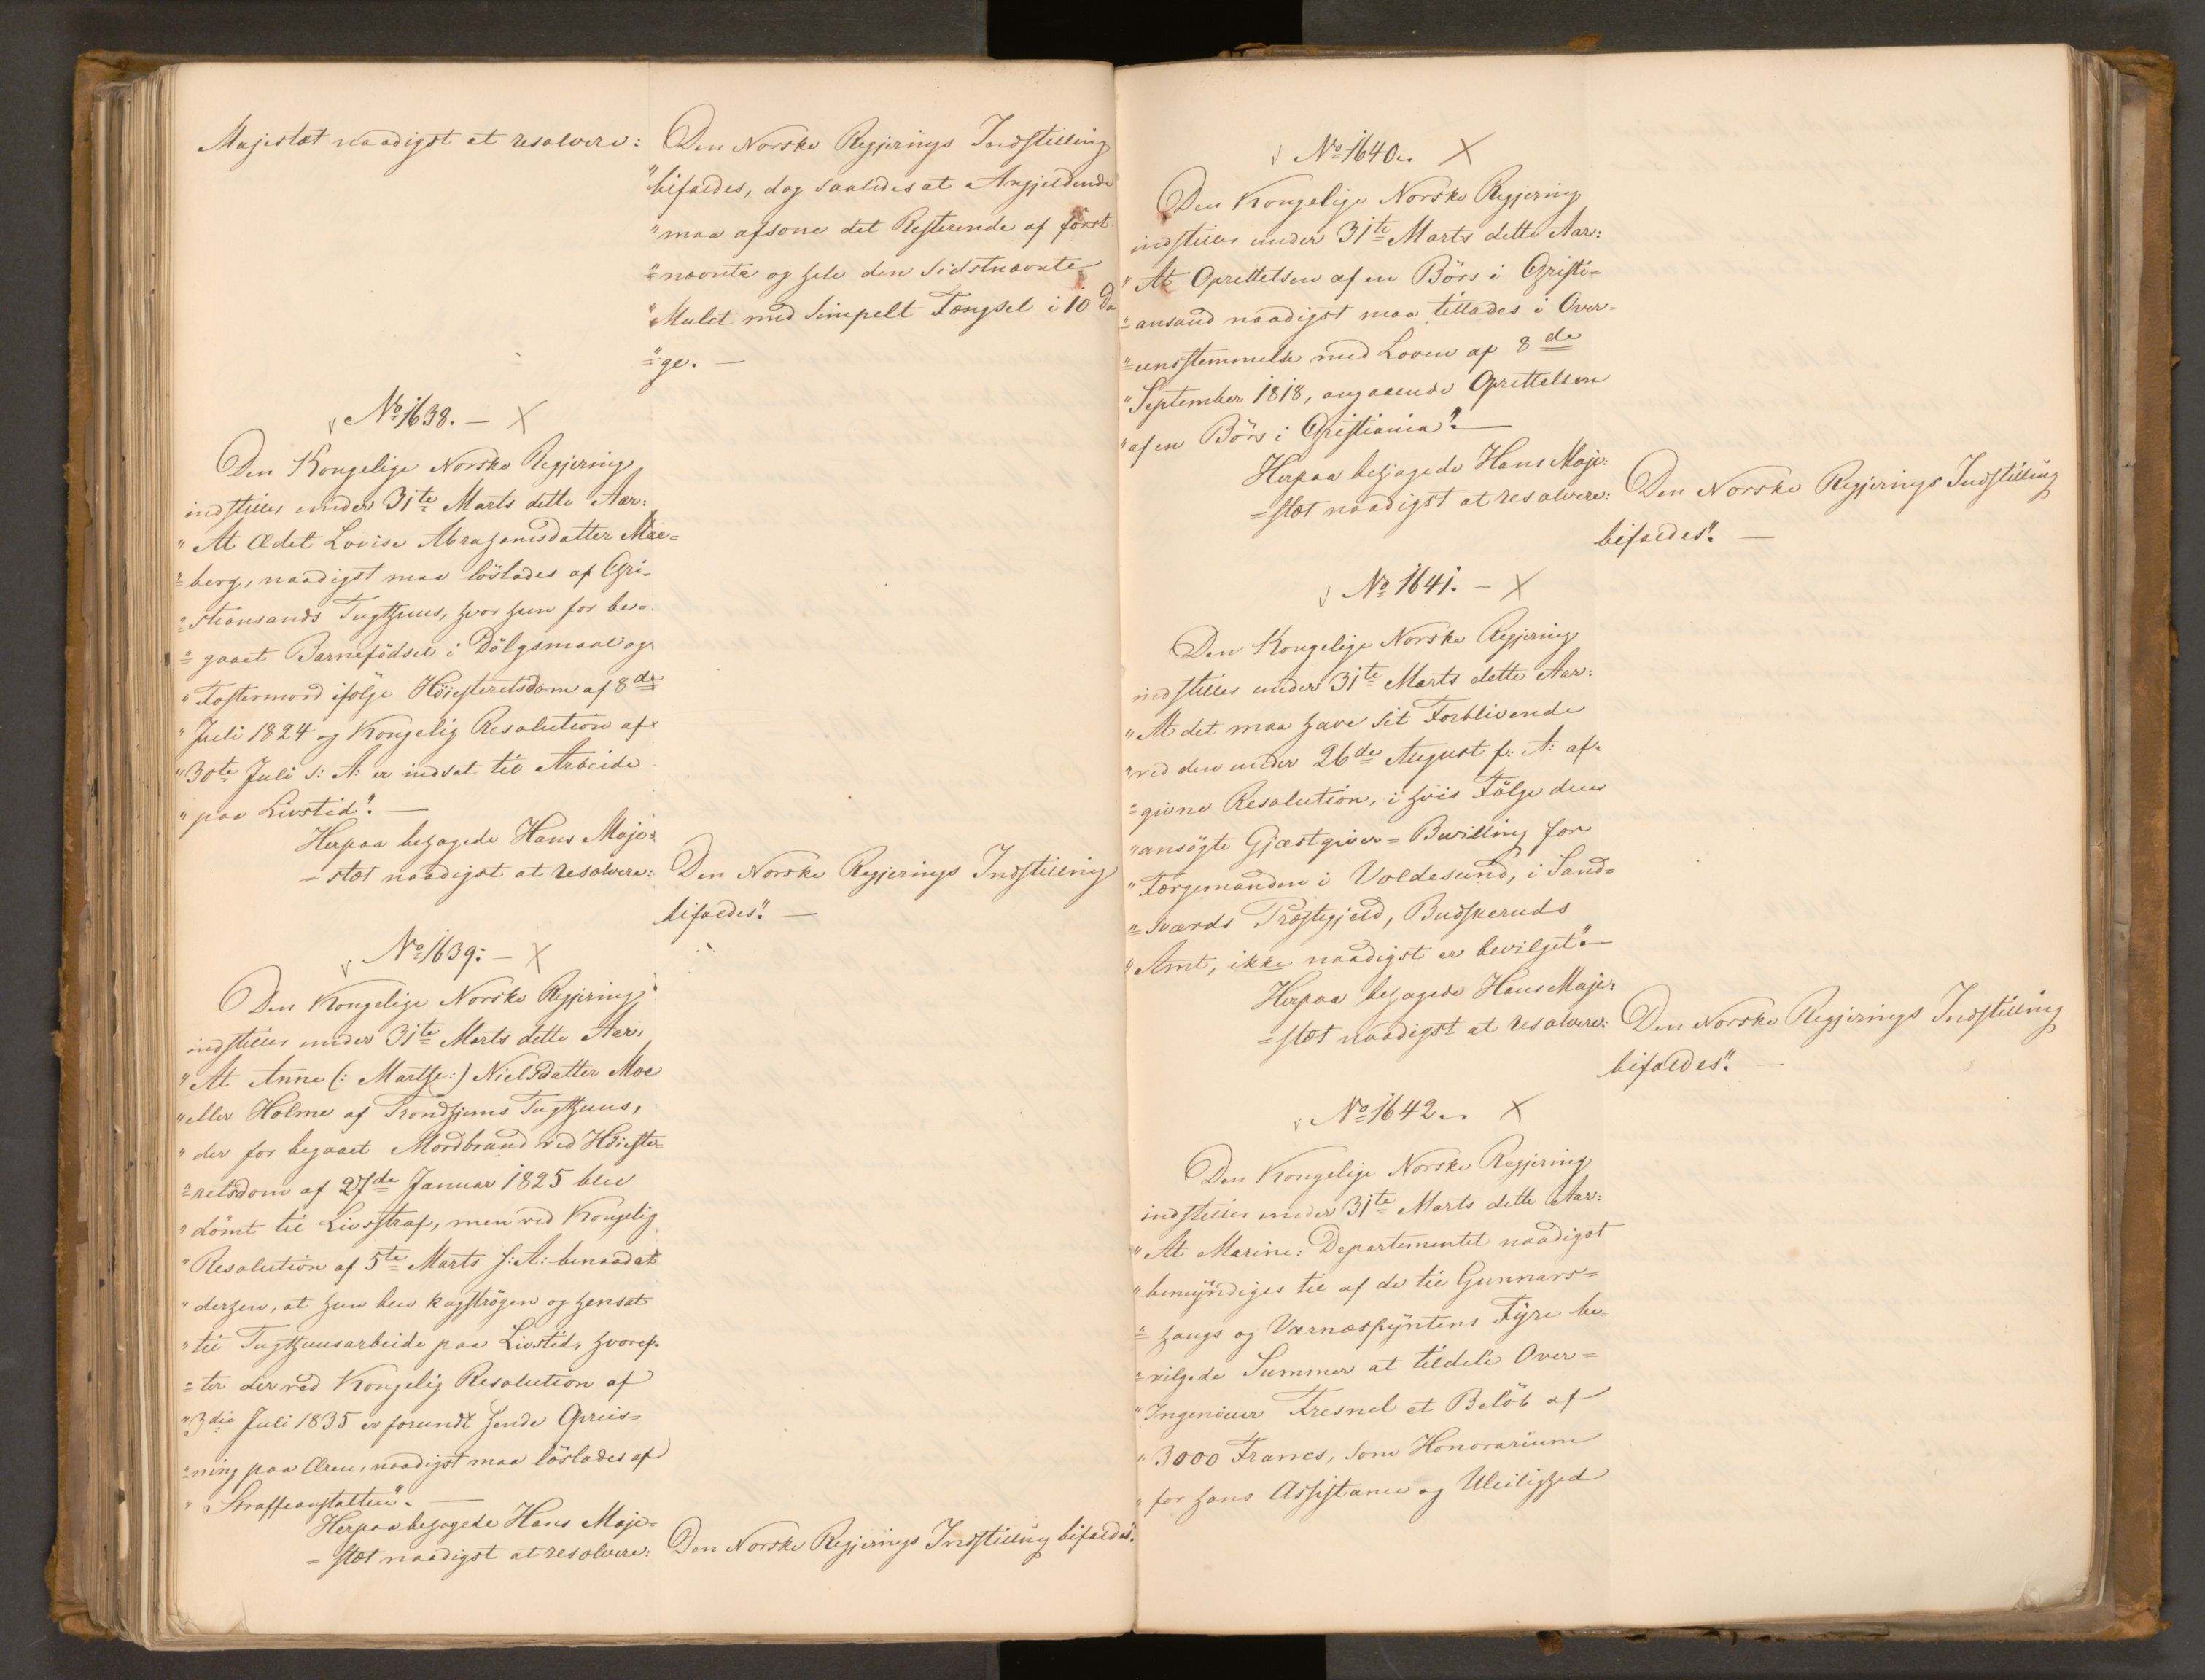 Majestæt naadigst at resolvere: Den Norske Regjerings Indstilling
"bifaldes, dog saaledes at Angjeldende
"maa afsone det Resterende af först-
"=nævnte og hele den Sidstnævnte
"Mulct med simpelt Fængsel i 10 Da
"=ge. —
No 1638. — X
Den Kongelige Norske Regjering
indstiller under 31te Marts dette Aar:
"At Ædel Lovise Abrahamsdatter Moe=
"=berg, naadigst maa löslades af Chri-
"=stiansands Tugthuus, hvor hun for be-
"=gaaet Barnefödsel i Dölgsmaal og
"Fostermord ifölge Höiesteretsdom af 8de
"Juli 1824 og Kongelig Resolution af
"30te Juli s: A: er indsat til Arbeide
"paa Livstid". —
Herpaa behagede Hans Maje-
=stæt naadigst at resolvere: Den Norske Regjerings Indstilling
bifaldes". —
No 1639: — X
Den Kongelige Norske Regjering
indstiller under 31te Marts dette Aar:
"At Anne (: Marthe:) Nielsdatter Moe
"eller Holme af Trondhjems Tugthuus,
"der for begaaet Mordbrand ved Höieste-
"=retsdom af 27de Januar 1825 blev
"dömt til Livsstraf, men ved Kongelig
"Resolution af 5te Marts s: A: benaadet
"derhen, at hun blev kagströgen og hensat
"til Tugthuusarbeide paa Livstid, hvoref-
"=ter der ved Kongelig Resolution af
"3die Juli 1835 er forundt hende Opreis=
"=ning paa Æren, naadigst maa löslades af
"Straffeanstalten". —
Herpaa behagede Hans Maje-
=stæt naadigst at resolvere: Den Norske Regjerings Indstilling bifaldes".
No 1640. X
Den Kongelige Norske Regjering
indstiller under 31te Marts dette Aar:
"At Oprettelsen af en Börs i Christi-
"=ansand naadigst maa tillades i Over-
"=eensstemmelse med Loven af 8de
"September 1818, angaaende Oprettelsen
"af en Börs i Christiania". —
Herpaa behagede Hans Maje-
=stæt naadigst at resolvere: Den Norske Regjerings Indstilling
bifaldes". —
No 1641. — X
Den Kongelige Norske Regjering
indstiller under 31te Marts dette Aar:
"At det maa have sit Forblivende
"ved den under 26de August f: A: af-
"=givne Resolution, i hvis Fölge den
"ansögte Gjæstgiver=Bevilling for
"Færgemanden i Voldesund, i Sand=
"=sværds Præstegjeld, Buskeruds
"Amt, ikke naadigst er bevilget". —
Herpaa behagede Hans Maje-
=stæt naadigst at resolvere: Den Norske Regjerings Indstilling
bifaldes". —
No 1642. X
Den Kongelige Norske Regjering
indstiller under 31te Marts dette Aar:
"At Marine: Departementet naadigst
"bemyndiges til af de til Gunnars=
"=haugs og Værnæspyntens Fyre be-
"=vilgede Summer at tildele Over=
"Ingenieur Fresnel et Belöb af
"3000 Francs, som Honorarium
"for hans Assistance og Uleilighed